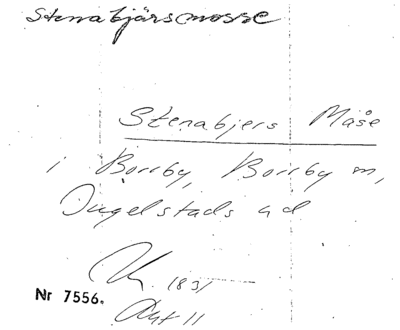 Stenabjärsmosse
Stenabjers Måse
i Borrby, Borrby sn,
Ingelstads hd
1831
Nr 7556.
Akt 11